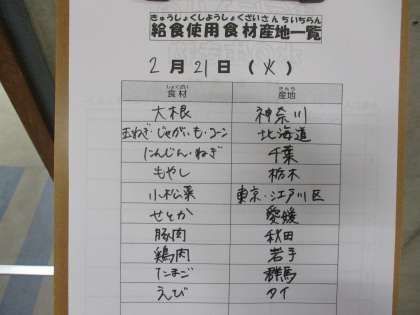 きゅうしょくしようしょくざいさんちいちらん
給食使用食材産地一覧
2月21日(火)
しょくざい さんち
食材 産地
大根 神奈川
玉ねぎ・じゃがいも・コーン 北海道
にんじん・ねぎ 千葉
もやし 栃木
小松菜 東京・江戸川区
せとか 愛媛
豚肉 秋田
鶏肉 岩手
たまご 群馬
えび タイ